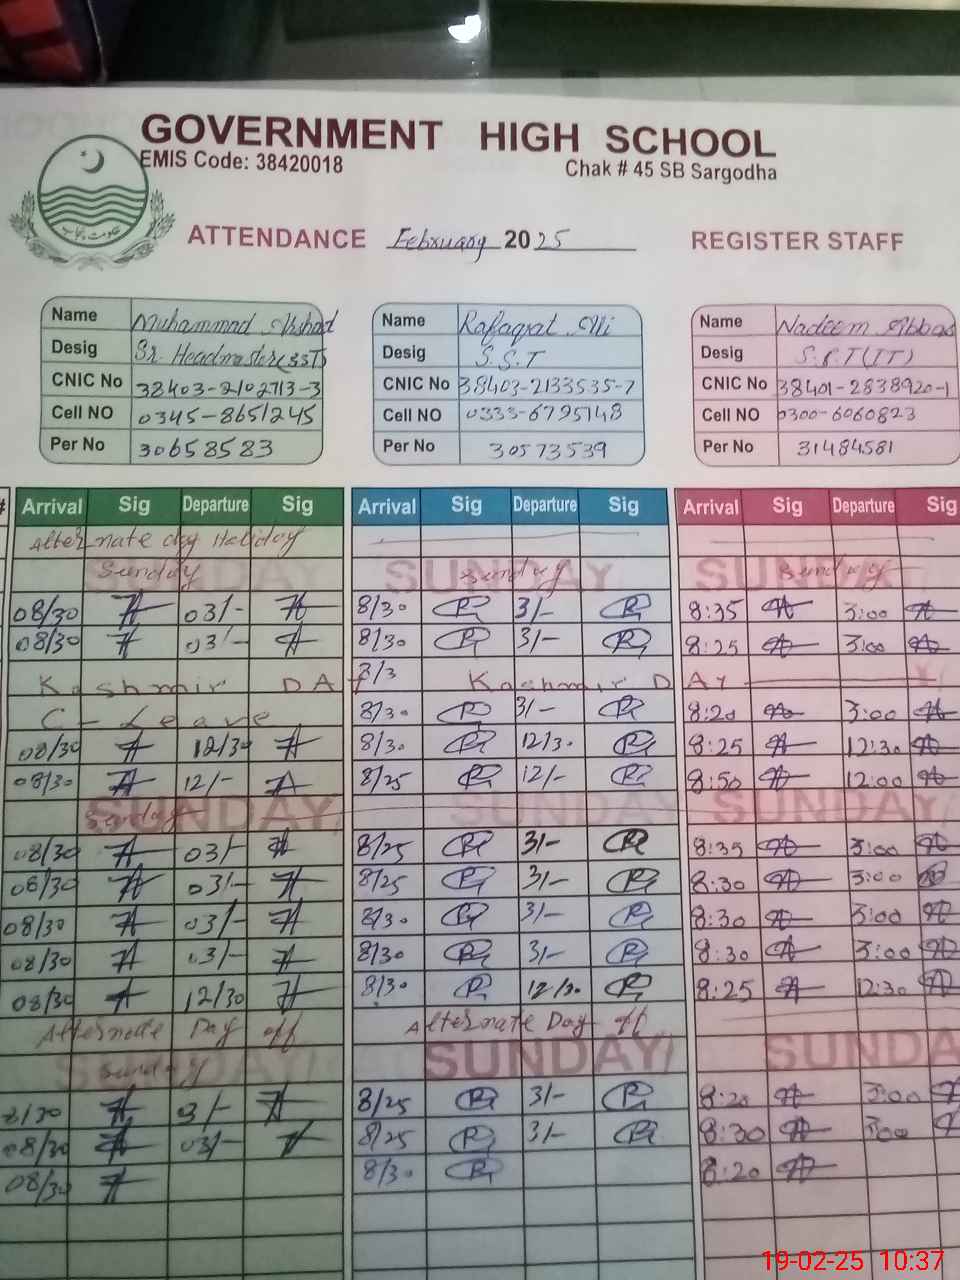 GOVERNMENT HIGH SCHOOL
EMIS Code: 38420018 Chak # 45 SB Sargodha
حکومت پنجاب
ATTENDANCE February 2025 REGISTER STAFF
Name Muhammad Arshad Name Rafaqat Ali Name Nadeem Abbas
Desig Sr. Headmaster(SST) Desig S.S.T Desig S.S.T(IT)
CNIC No 38403-2102713-3 CNIC No 38403-2133535-7 CNIC No 38401-2838920-1
Cell NO 0345-8651245 Cell NO 0333-6795148 Cell NO 0300-6060823
Per No 30658583 Per No 30573539 Per No 31484581
# Arrival Sig Departure Sig Arrival Sig Departure Sig Arrival Sig Departure Sig
Alternate day Holiday
Sunday SUNDAY Sunday SUNDAY Sunday
08/30 03/- 8/30 3/- 8:35 3:00
08/30 03/- 8/30 3/- 8:25 3:00
Kashmir DAY 3/3 Kashmir DAY
C-Leave 8/30 3/- 8:20 3:00
08/30 12/30 8/30 12/30 8:25 12:30
08/30 12/- 8/25 12/- 8:50 12:00
SUNDAY Sunday SUNDAY SUNDAY
08/30 03/- 8/25 3/- 8:35 3:00
08/30 03/- 8/25 3/- 8:30 3:00
08/30 03/- 8/30 3/- 8:30 3:00
08/30 03/- 8/30 3/- 8:30 3:00
08/30 12/30 8/30 12/30 8:25 12:30
Alternate Day off Alternate Day off
SUNDAY Sunday SUNDAY SUNDAY
8/30 3/- 8/25 3/- 8:20 3:00
08/30 03/- 8/25 3/- 8:30 3:00
08/30 8/30 8:20
19-02-25 10:37